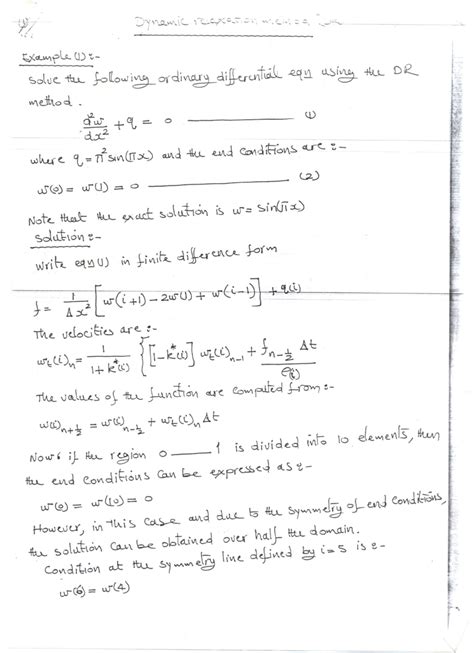 Dynamic relaxation method
Example (1) :-
Solve the following ordinary differential eqn using the DR
method.
d²w/dx² + q = 0 ——— (1)
where q = π² sin(πx) and the end conditions are :-
w(0) = w(1) = 0 ——— (2)
Note that the exact solution is w = sin(πx)
Solution :-
Write eqn(1) in finite difference form
f = 1/Δx² [w(i+1) - 2w(i) + w(i-1)] + q(i)
The velocities are :-
w_t(i)_n = 1/(1+k*(i)) {[1-k*(i)] w_t(i)_{n-1} + f_{n-½} Δt/ρ(i)
The values of the function are computed from :-
w(i)_{n+½} = w(i)_{n-½} + w_t(i)_n Δt
Now if the region 0 ——— 1 is divided into 10 elements, then
the end conditions can be expressed as :-
w(0) = w(10) = 0
However, in this case and due to the symmetry of end conditions,
the solution can be obtained over half the domain.
Condition at the symmetry line defined by i = 5 is :-
w(6) = w(4)